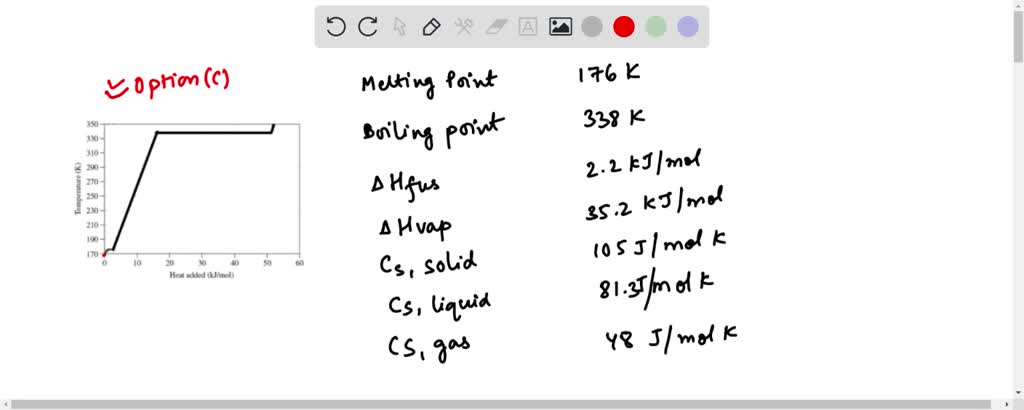 A
Option (C)
Melting Point 176 K
Boiling point 338 K
ΔHfus 2.2 KJ/mol
ΔHvap 35.2 KJ/mol
Cs, solid 105 J/mol K
Cs, liquid 81.3J/mol K
Cs, gas 48 J/mol K
350
330
310
290
270
250
230
210
190
170
Temperature (K)
0 10 20 30 40 50 60
Heat added (kJ/mol)